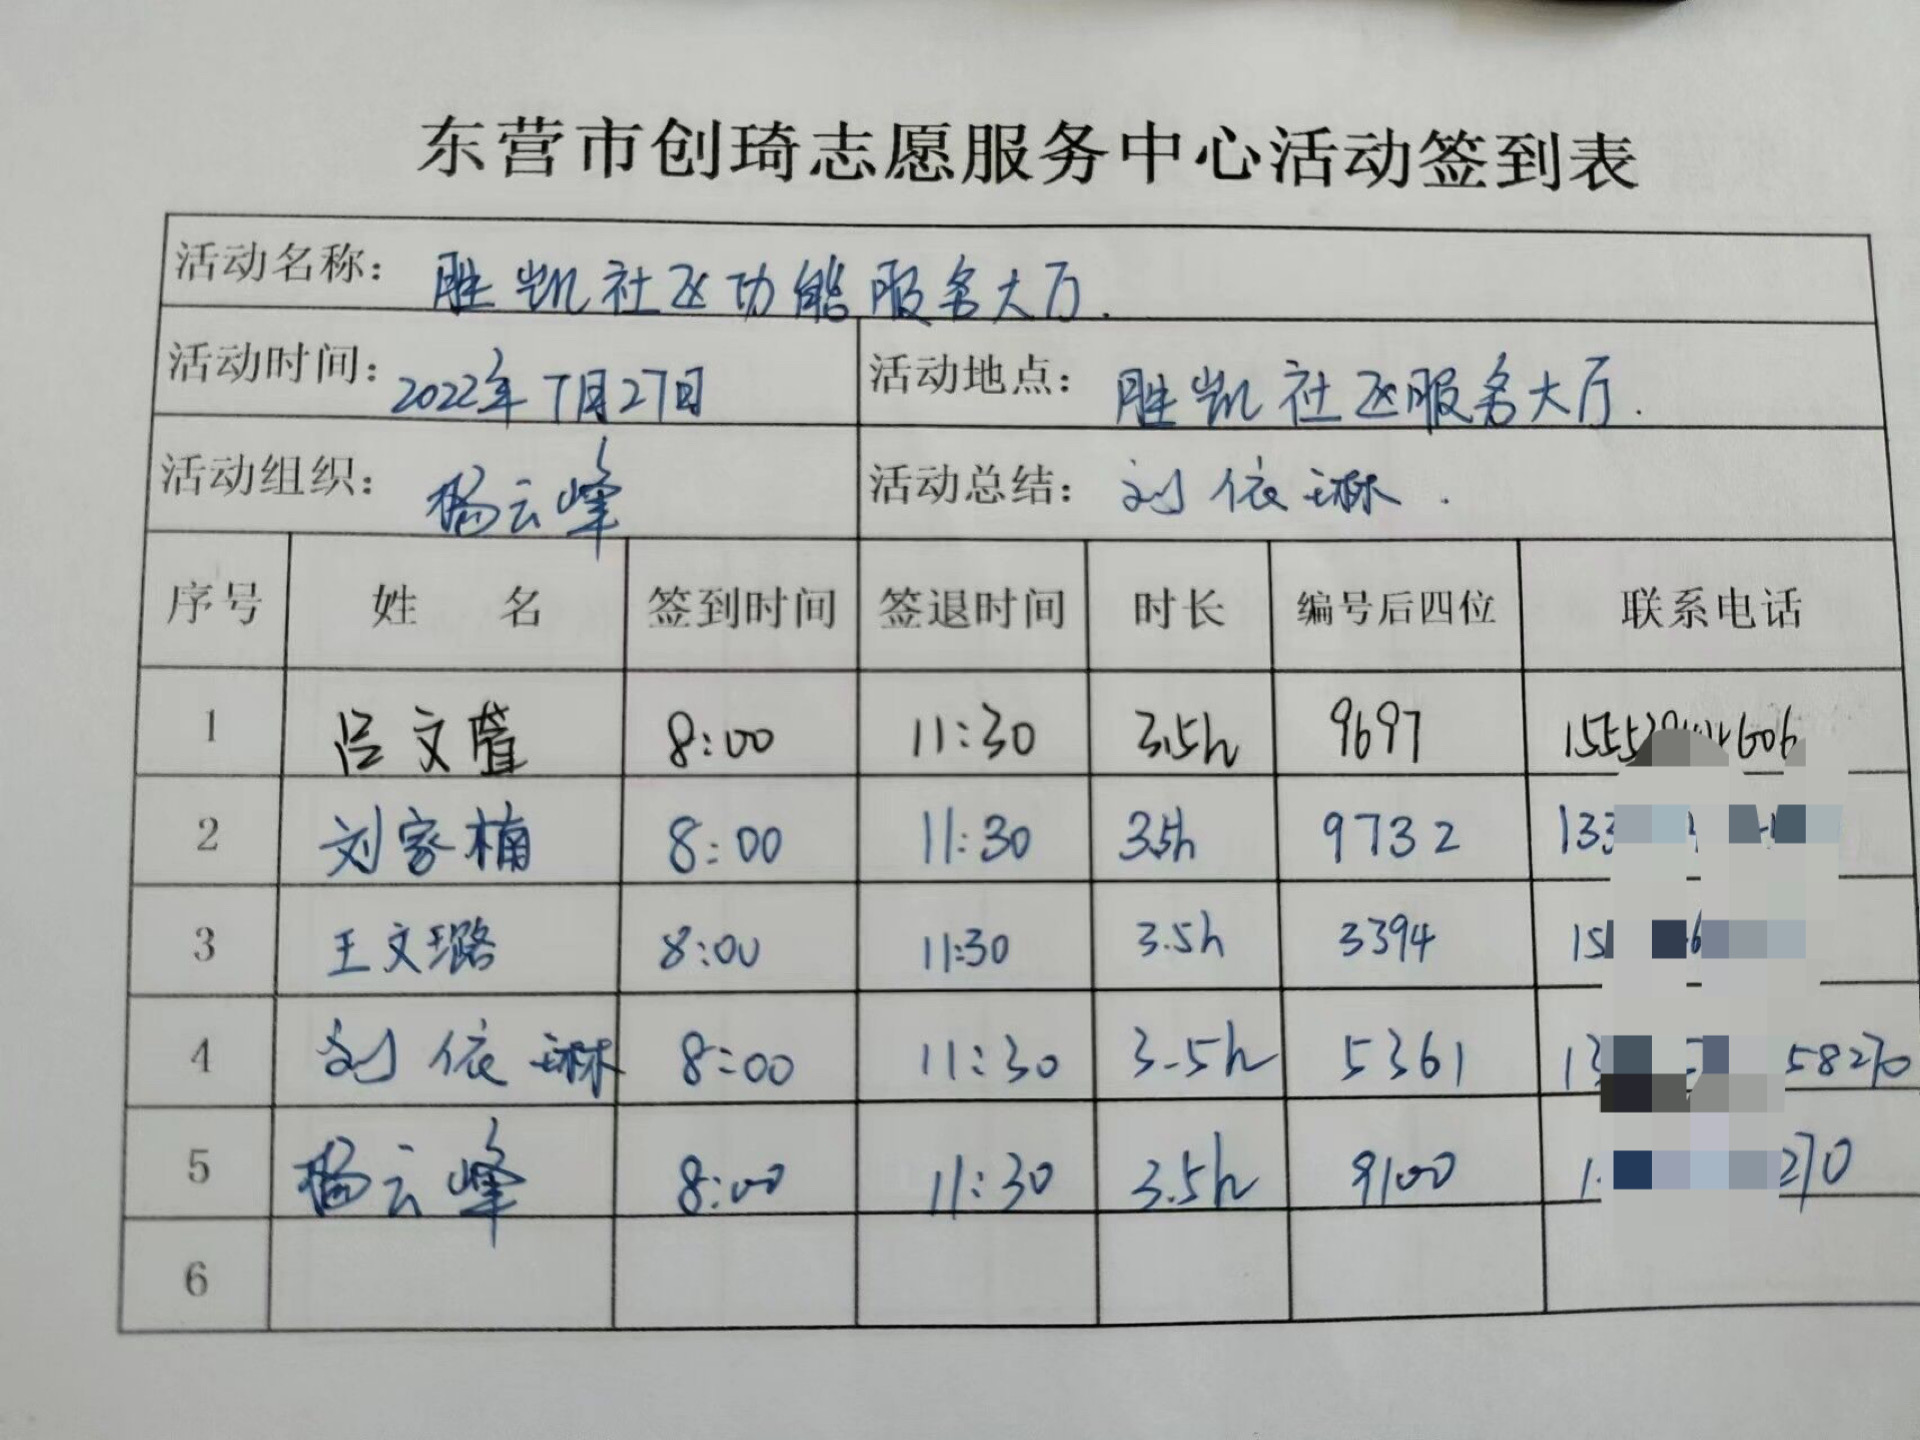 东营市创琦志愿服务中心活动签到表
活动名称： 胜凯社区功能服务大厅.
活动时间： 2022年7月27日 活动地点： 胜凯社区服务大厅.
活动组织： 杨云峰 活动总结： 刘依琳.
序号 姓 名 签到时间 签退时间 时长 编号后四位 联系电话
1 吕文萱 8:00 11:30 3.5h 9697
2 刘家楠 8:00 11:30 3.5h 9732 133
3 王文璐 8:00 11:30 3.5h 3394 15
4 刘依琳 8:00 11:30 3.5h 5361 13 58270
5 杨云峰 8:00 11:30 3.5h 9100 1 270
6